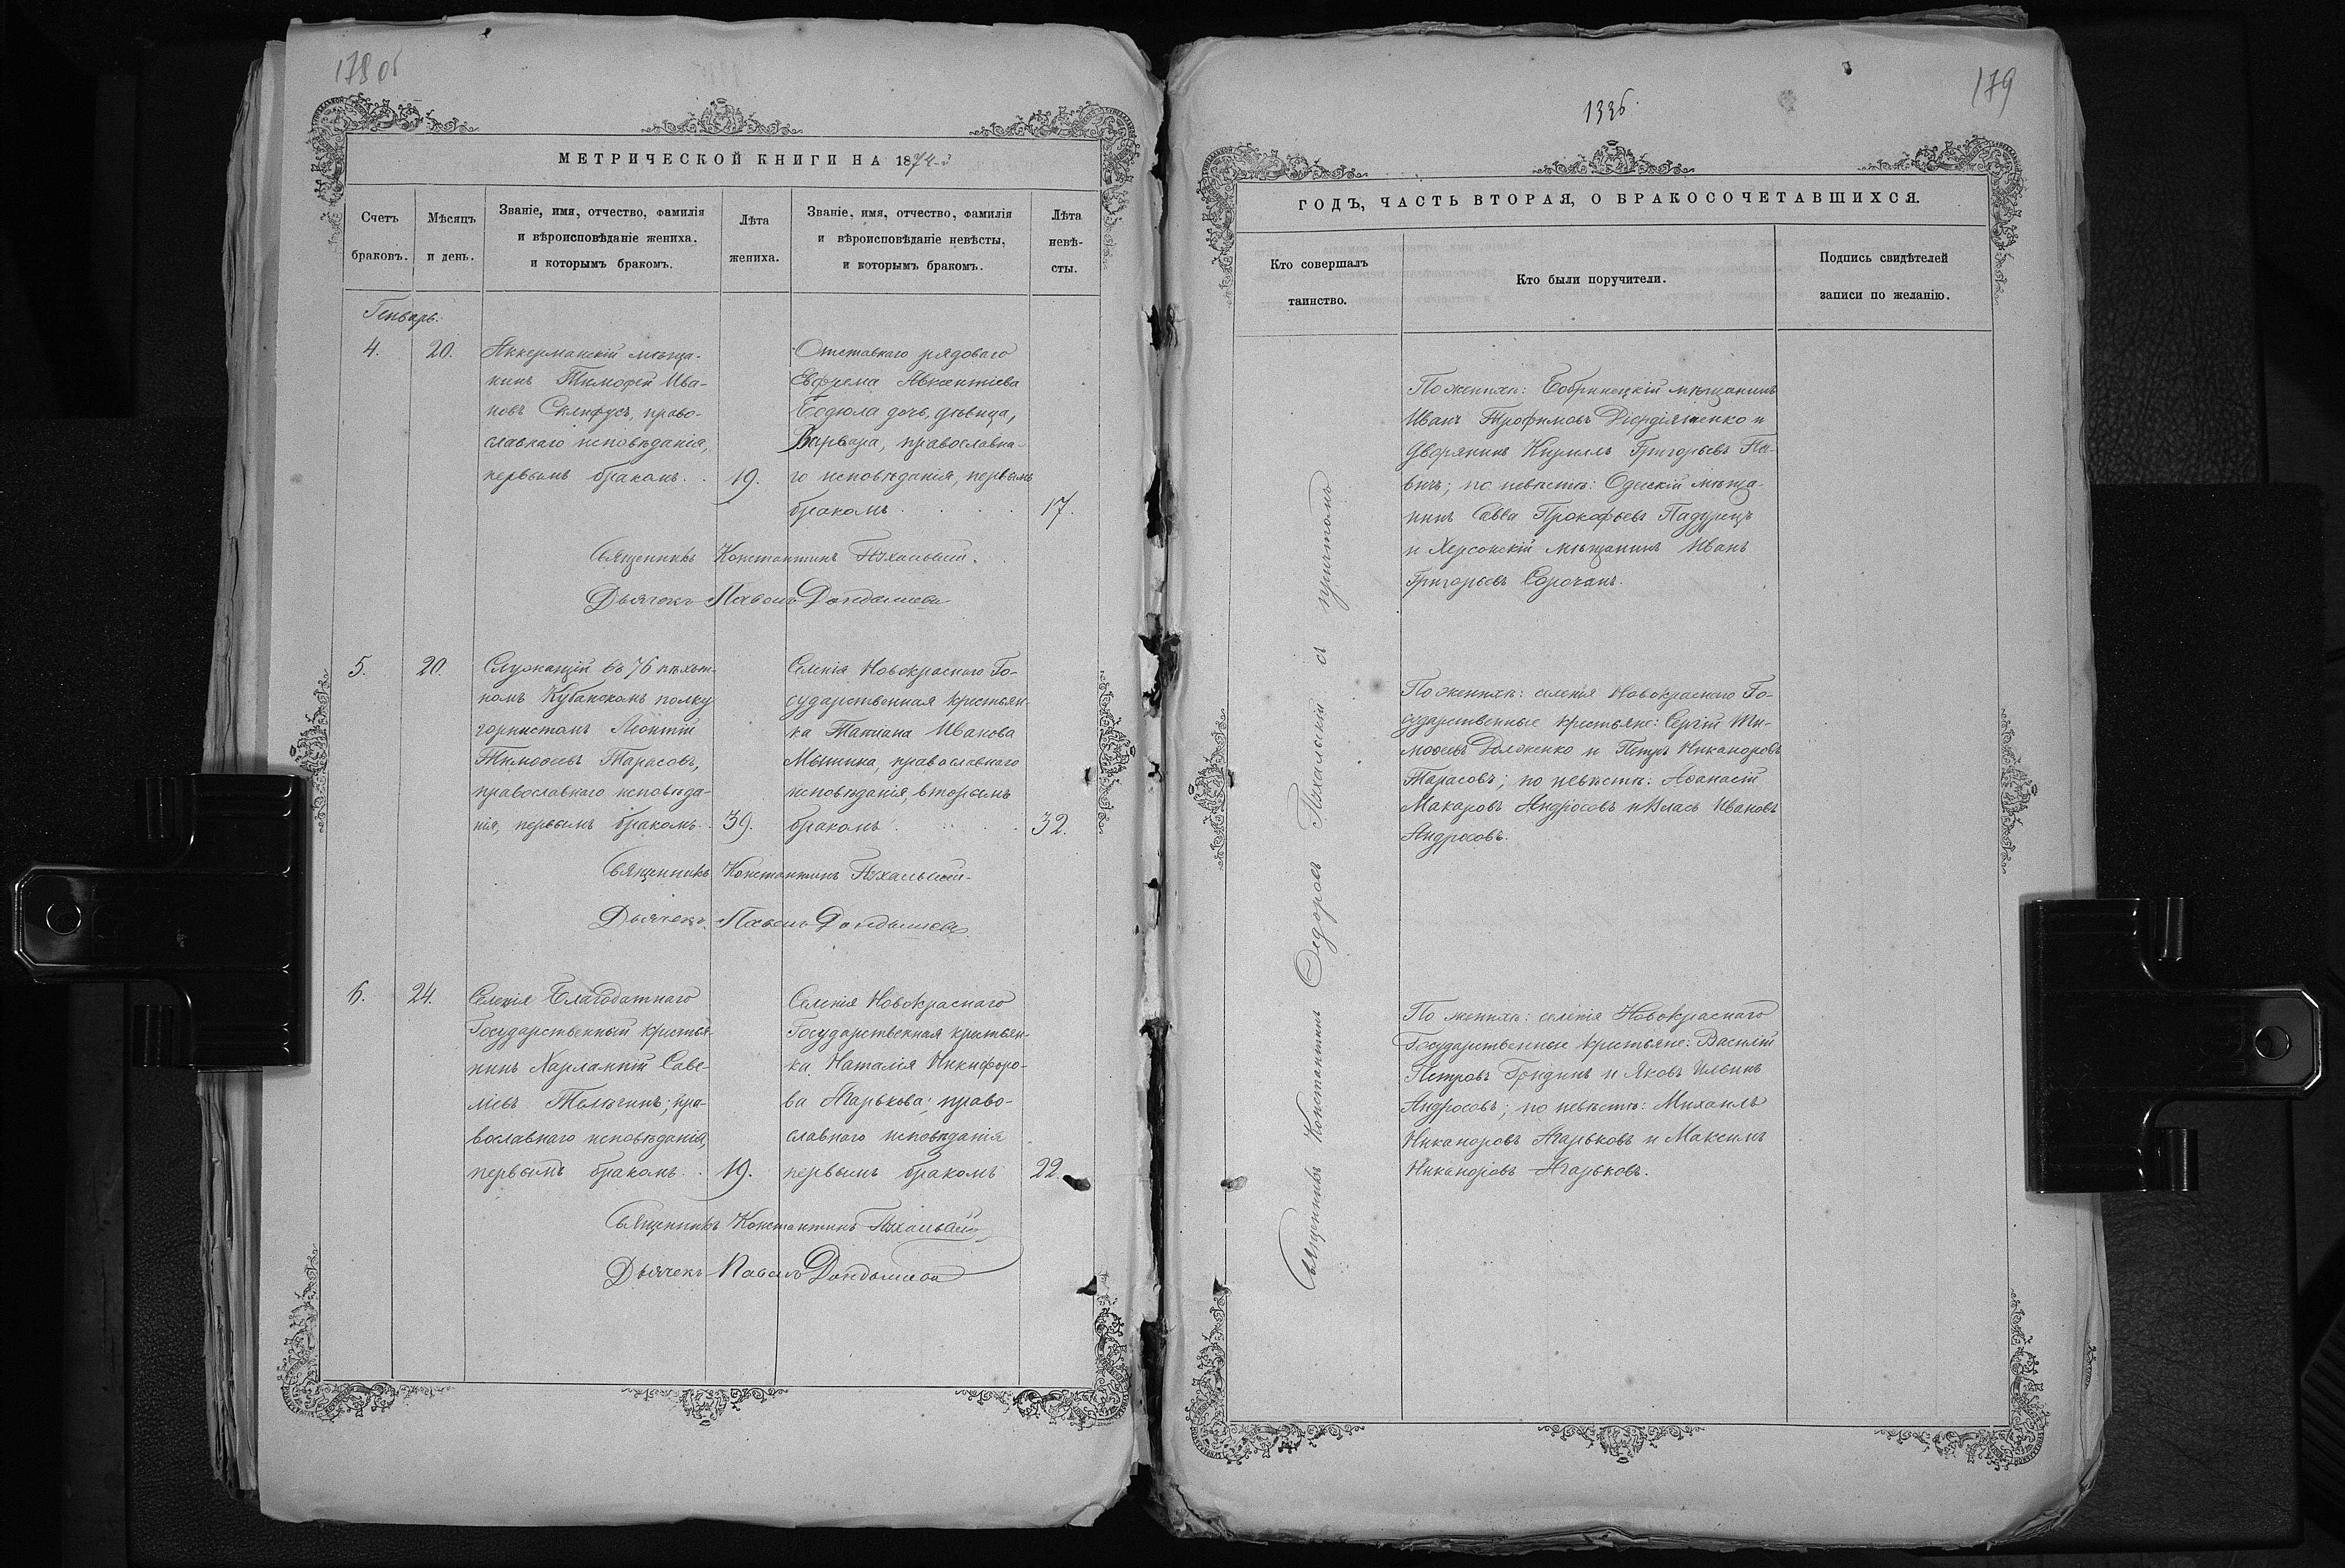 178 об
МЕТРИЧЕСКОЙ КНИГИ НА 1874-й
Счетъ браковъ.
Мѣсяцъ и день.
Званіе, имя, отчество, фамилія
и вѣроисповѣданіе жениха.
и которымъ бракомъ.
Лѣта
жениха.
Званіе, имя, отчество, фамилія
и вѣроисповѣданіе невѣсты,
и которымъ бракомъ.
Лѣта
невѣ-
сты.
Генварь.
4.
20.
Аккерманскій мѣща-
нинъ Тимофей Ива-
новъ Склифусъ, право-
славнаго исповѣданія,
первымъ бракомъ.
19.
Отставнаго рядоваго
Евфрема Авксентіева
Бодюла дочь, дѣвица,
Варвара, православна-
го исповѣданія, первымъ
бракомъ
17.
Священникъ Константинъ Пухальскій.
Дьячекъ Павелъ
5.
20.
Служащій въ 76 пѣхот-
номъ Кубанскомъ полку
горнистомъ Леонтій
Тимоѳеевъ Тарасовъ,
православнаго исповѣда-
нія, первымъ бракомъ.
39.
Селенія Новокраснаго Го-
сударственная крестьян-
ка Татіана Иванова
Мынина, православнаго
исповѣданія, вторымъ
бракомъ
32.
Священникъ Константинъ Пухальскій.
Дьячекъ Павелъ
6.
24.
Селенія Благодатнаго
Государственный крестья-
нинъ Харлампій Саве-
ліевъ Телегинъ, пра-
вославнаго исповѣданія,
первымъ бракомъ.
19.
Селенія Новокраснаго
Государственная крестьян-
ка Наталія Никифоро-
ва Агарькова, право-
славнаго исповѣданія
первымъ бракомъ
22.
Священникъ Константинъ Пухальскій
Дьячекъ Павелъ
179
1336.
ГОДЪ, ЧАСТЬ ВТОРАЯ, О БРАКОСОЧЕТАВШИХСЯ.
Кто совершалъ
таинство.
Кто были поручители.
Подпись свидѣтелей
записи по желанію.
Священникъ Константинъ Ѳедоровъ Пухальскій съ причтомъ
По женихѣ: Бобринецкій мѣщанинъ
Иванъ Трофимовъ и
дворянинъ Кирилъ Григорьевъ
вичъ; по невѣстѣ: Одескій мѣща-
нинъ Савва Прокофьевъ Падурецъ
и Херсонскій мѣщанинъ Иванъ
Григорьевъ Сорочанъ.
По женихѣ: селенія Новокраснаго Го-
сударственные крестьяне: Сергій Ти-
моѳеевъ Долженко и Петръ Никаноровъ
Тарасовъ; по невѣстѣ: Аѳанасій
Макаровъ Андросовъ и Власъ Ивановъ
Андросовъ.
По женихѣ: селенія Новокраснаго
Государственные крестьяне: Василій
Петровъ Гридинъ и Яковъ Ильинъ
Андросовъ; по невѣстѣ: Михаилъ
Никаноровъ Агарьковъ и Максимъ
Никаноровъ Агарьковъ.